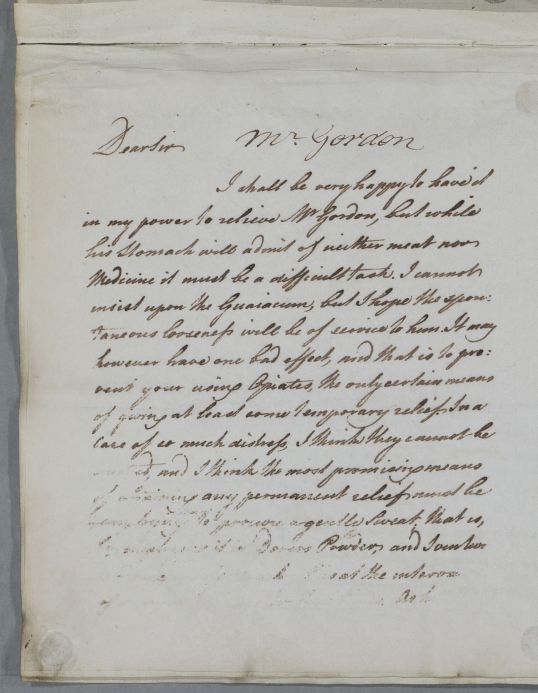 Dear Sir Mr. Gordon
I shall be very happy to have it
in my power to relieve Mr Gordon, but while
his Stomach will admit of neither meat nor
Medicine it must be a difficult task. I cannot
insist upon the Guaiacum, but I hope the spon:
taneous looseness will be of service to him. It may
however have one bad effect, and that is to pre:
vent your using Opiates, the only certain means
of giving at least some temporary relief. In a
Case of so much distress, I think they cannot be
and I think the most promising means
of obtaining any permanent relief must be
by to procure a gentle Sweat, that is,
in Dovers Powder, and I venture
at the interva
of